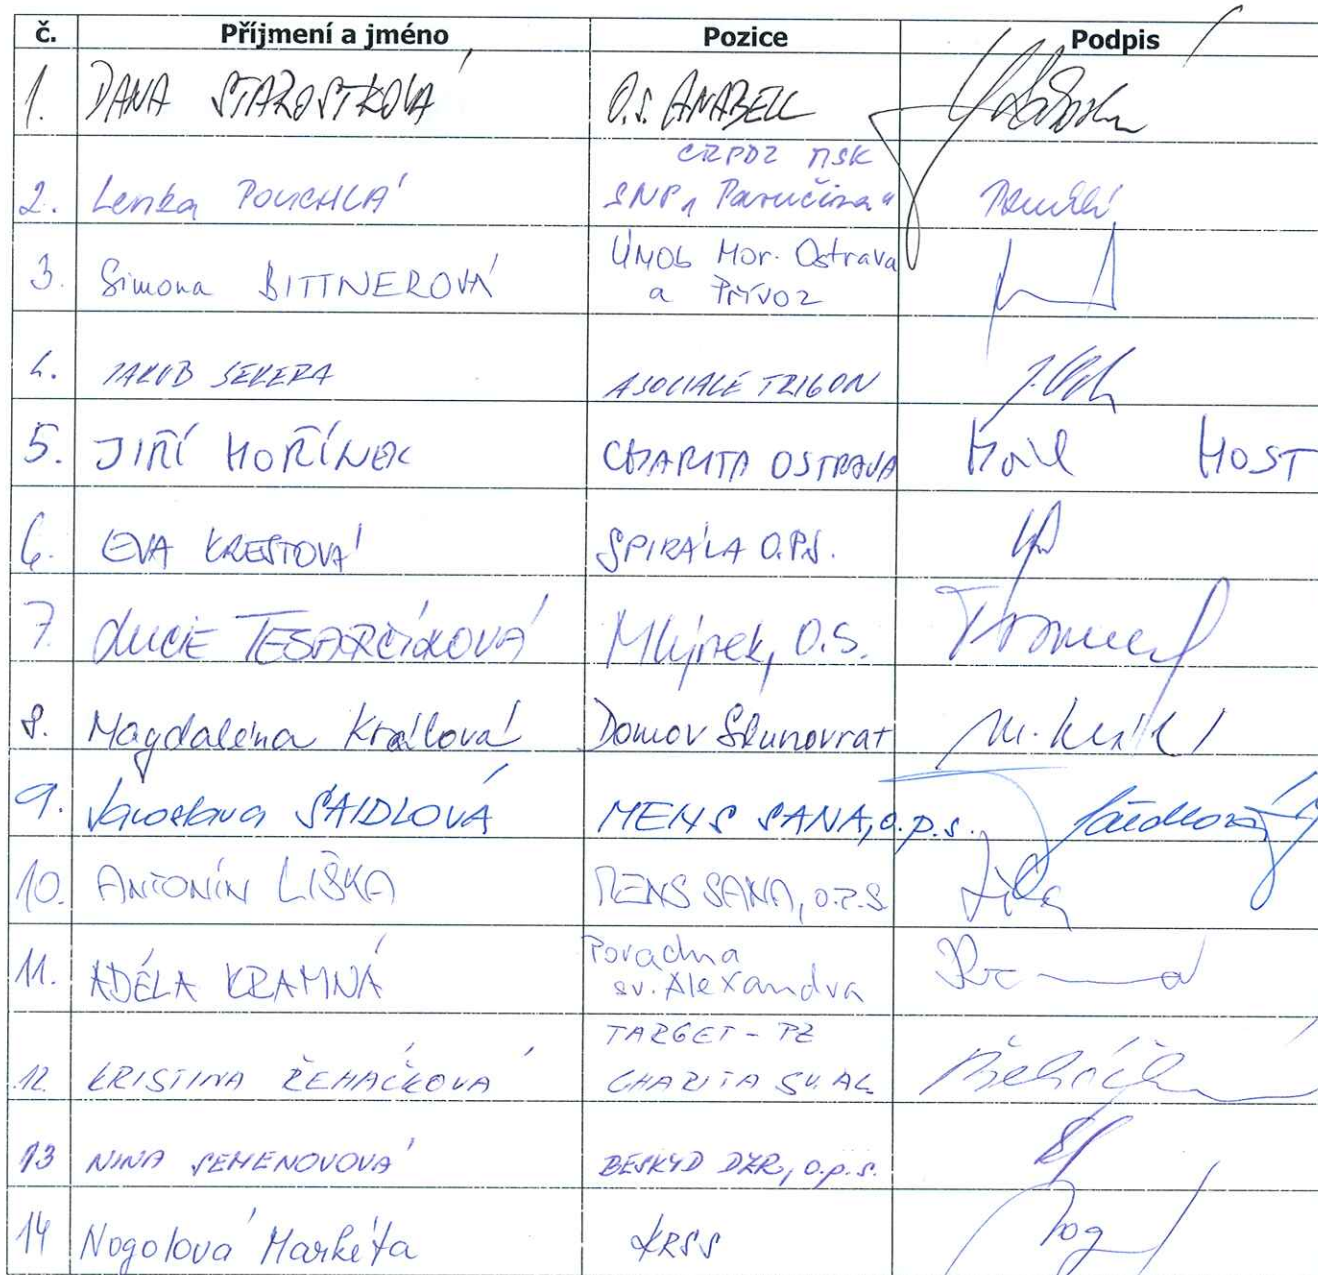 č. Příjmení a jméno Pozice Podpis
1. DANA STAROSTKOVÁ O.S. ANABELL
CZPDZ MSK
2. Lenka POUCHLÁ SNP „Paručina“
3. Simona BITTNEROVÁ ÚMOb Mor. Ostrava
a Přívoz
4. JAKUB SEKERA ASOCIACE TRIGON
5. JIŘÍ HOŘÍNEK CHARITA OSTRAVA HOST
6. EVA KRESTOVÁ SPIRÁLA O.P.S.
7. LUCIE TESARČÍKOVÁ Mlýnek, O.S.
8. Magdaléna Králová Domov Slunovrat M. Král
9. Jaroslava ŠAIDLOVÁ MENS SANA, o.p.s. Šaidlová
10. ANTONÍN LIŠKA MENS SANA, O.P.S.
11. ADÉLA KRAMNÁ Poradna
sv. Alexandra
TARGET - PZ
12. KRISTINA ŘEHÁČKOVÁ CHARITA SV. AL
13 NINA SEMENOVOVÁ BESKYD DZR, o.p.s.
14 Nogolová Markéta KRSS Nog